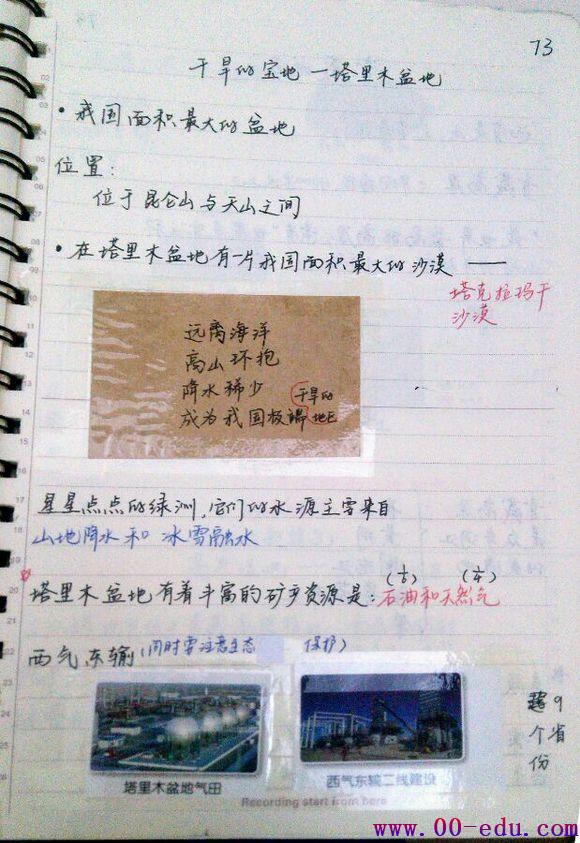 73
干旱的宝地—塔里木盆地
• 我国面积最大的盆地
位置：
位于昆仑山与天山之间
• 在塔里木盆地有一片我国面积最大的沙漠 ——
塔克拉玛干
沙漠
远离海洋
高山环抱
降水稀少
成为我国极端
干旱的
地区
星星点点的绿洲，它们的水源主要来自
山地降水和冰雪融水
塔里木盆地有着丰富的矿产资源是：石油和天然气
西气东输（同时要注意生态 保护）
9
个省
份
塔里木盆地气田
西气东输二线建设
Recording start from here
www.00-edu.com